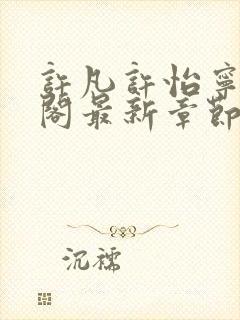 許凡許怡寧
閣最新章節
沉襦